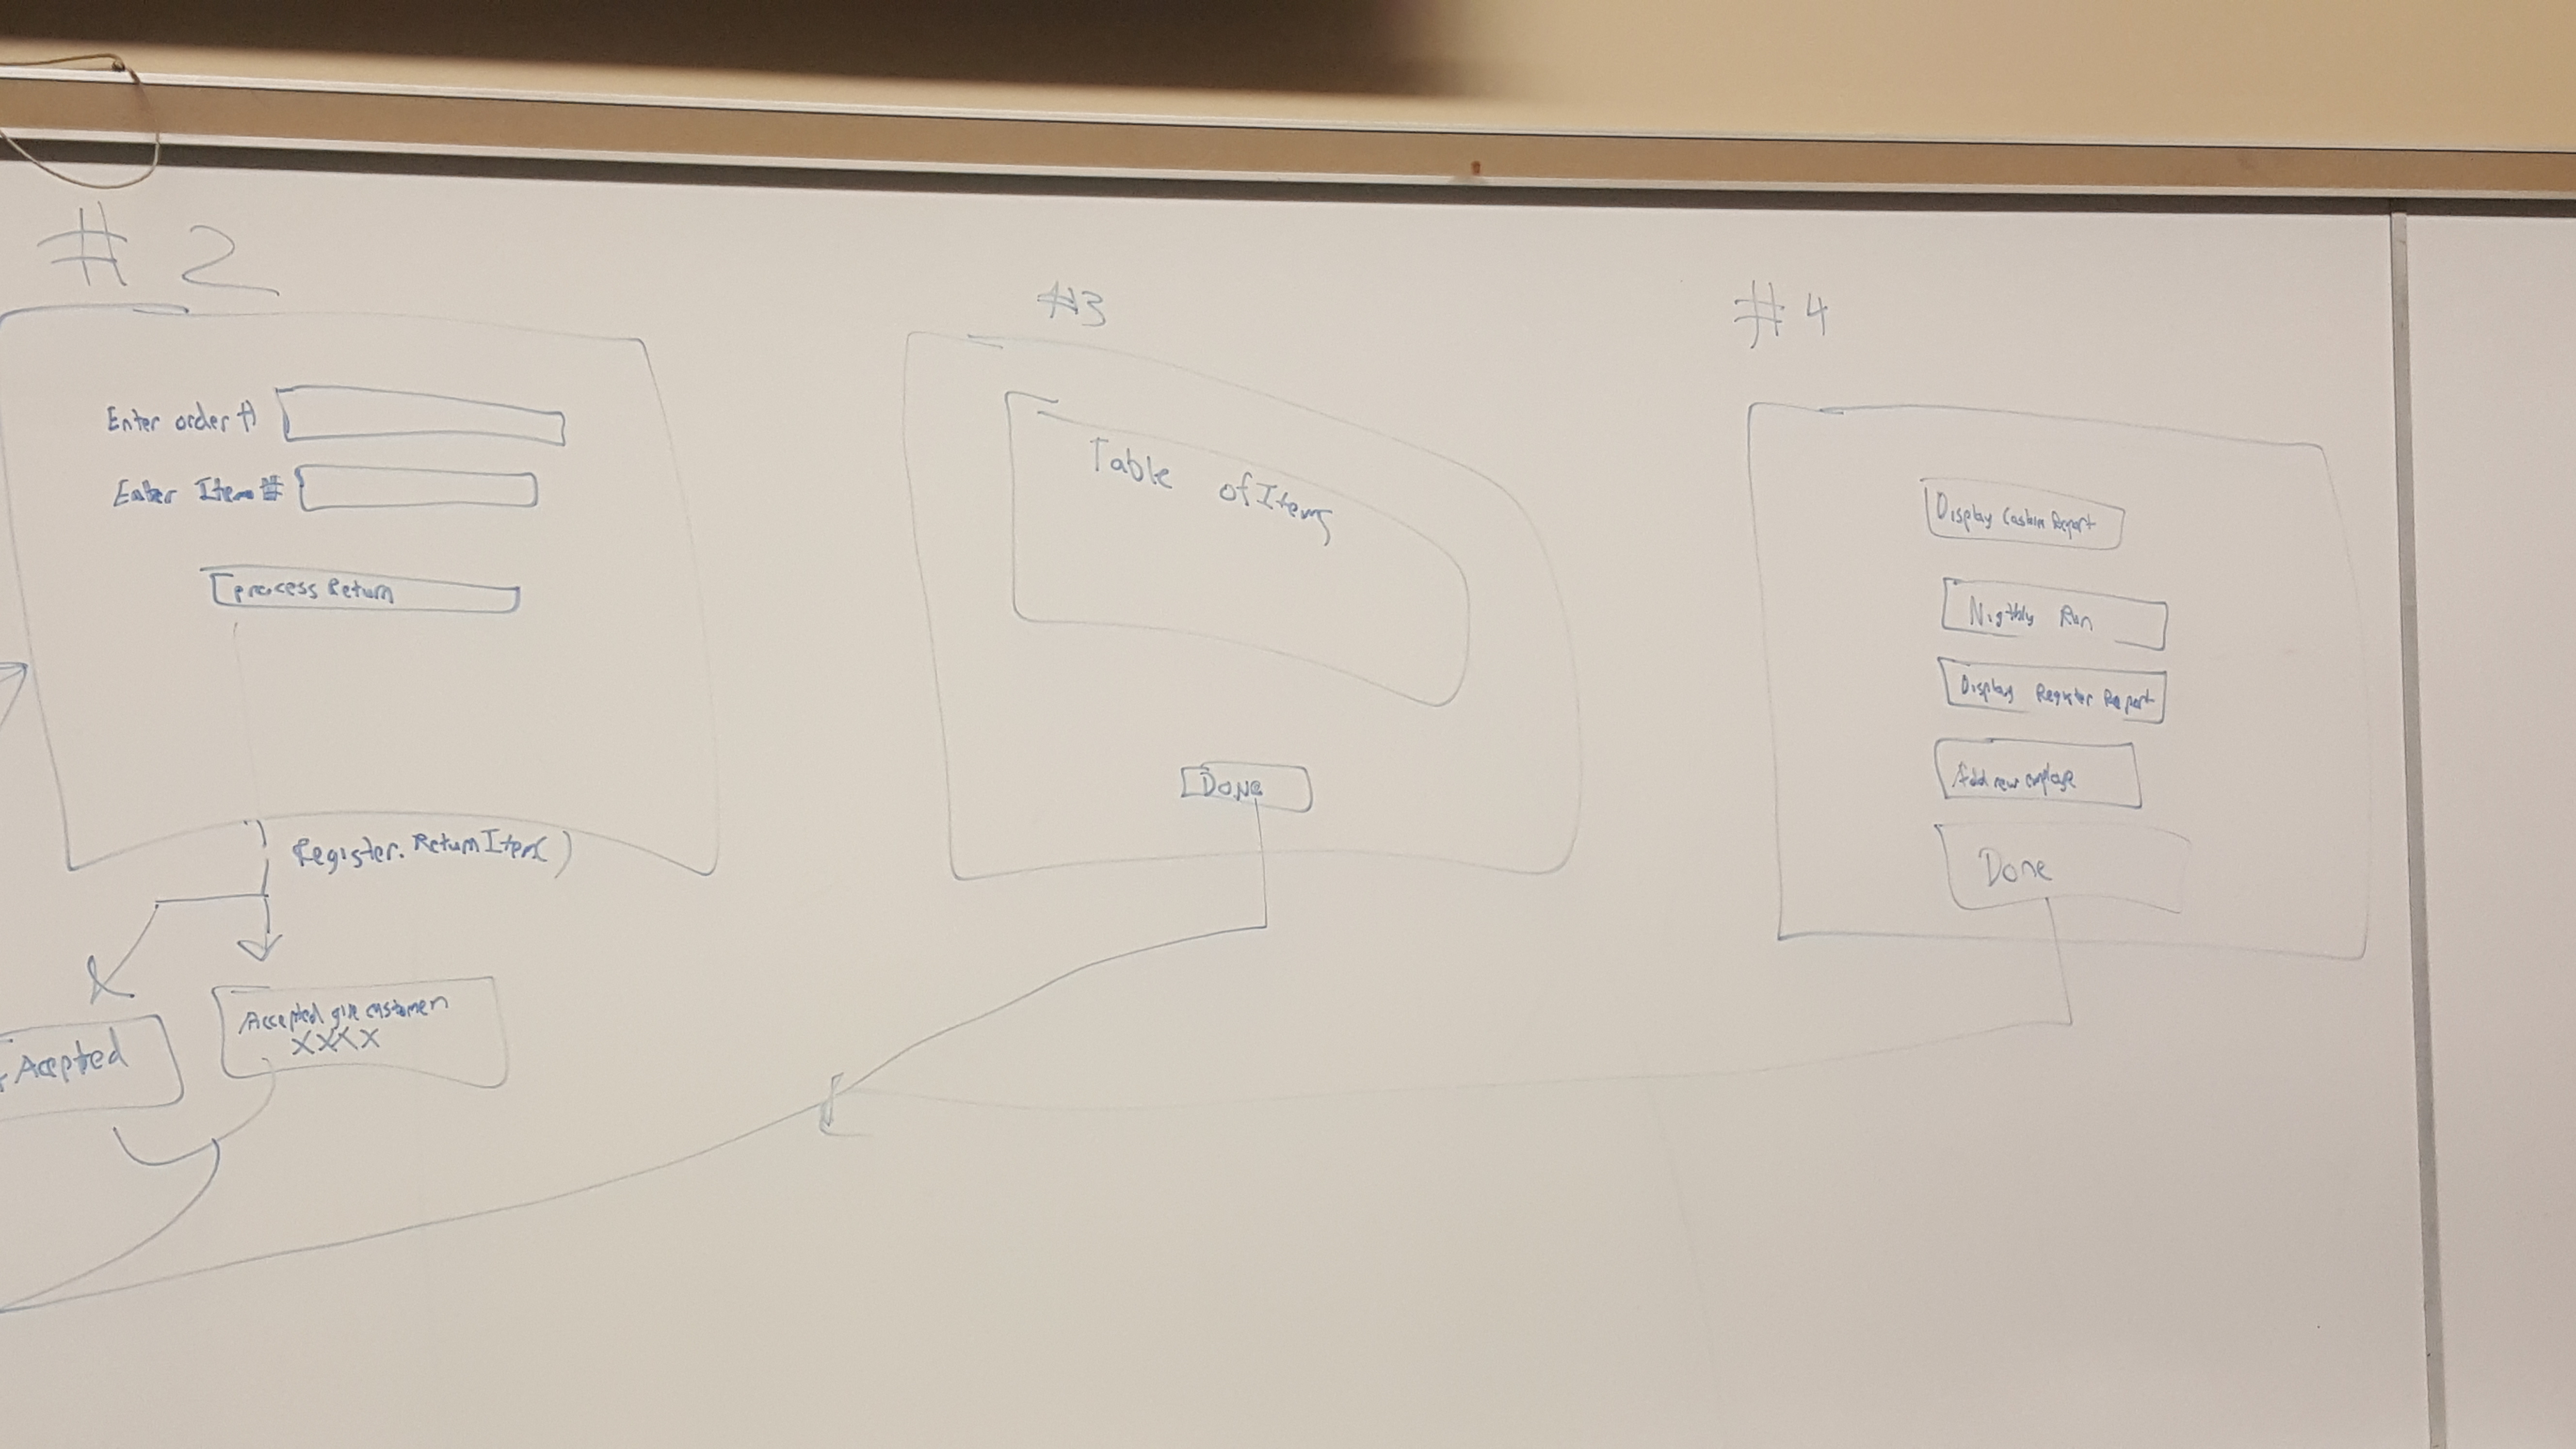 # 2
Enter order #
Enter Item #
process Return
Register. Return Item( )
Acepted
Accepted give customer
XXXX
#3
Table of Items
Done
# 4
Display Cashier Report
Nigthly Run
Display Register Report
Add new employe
Done